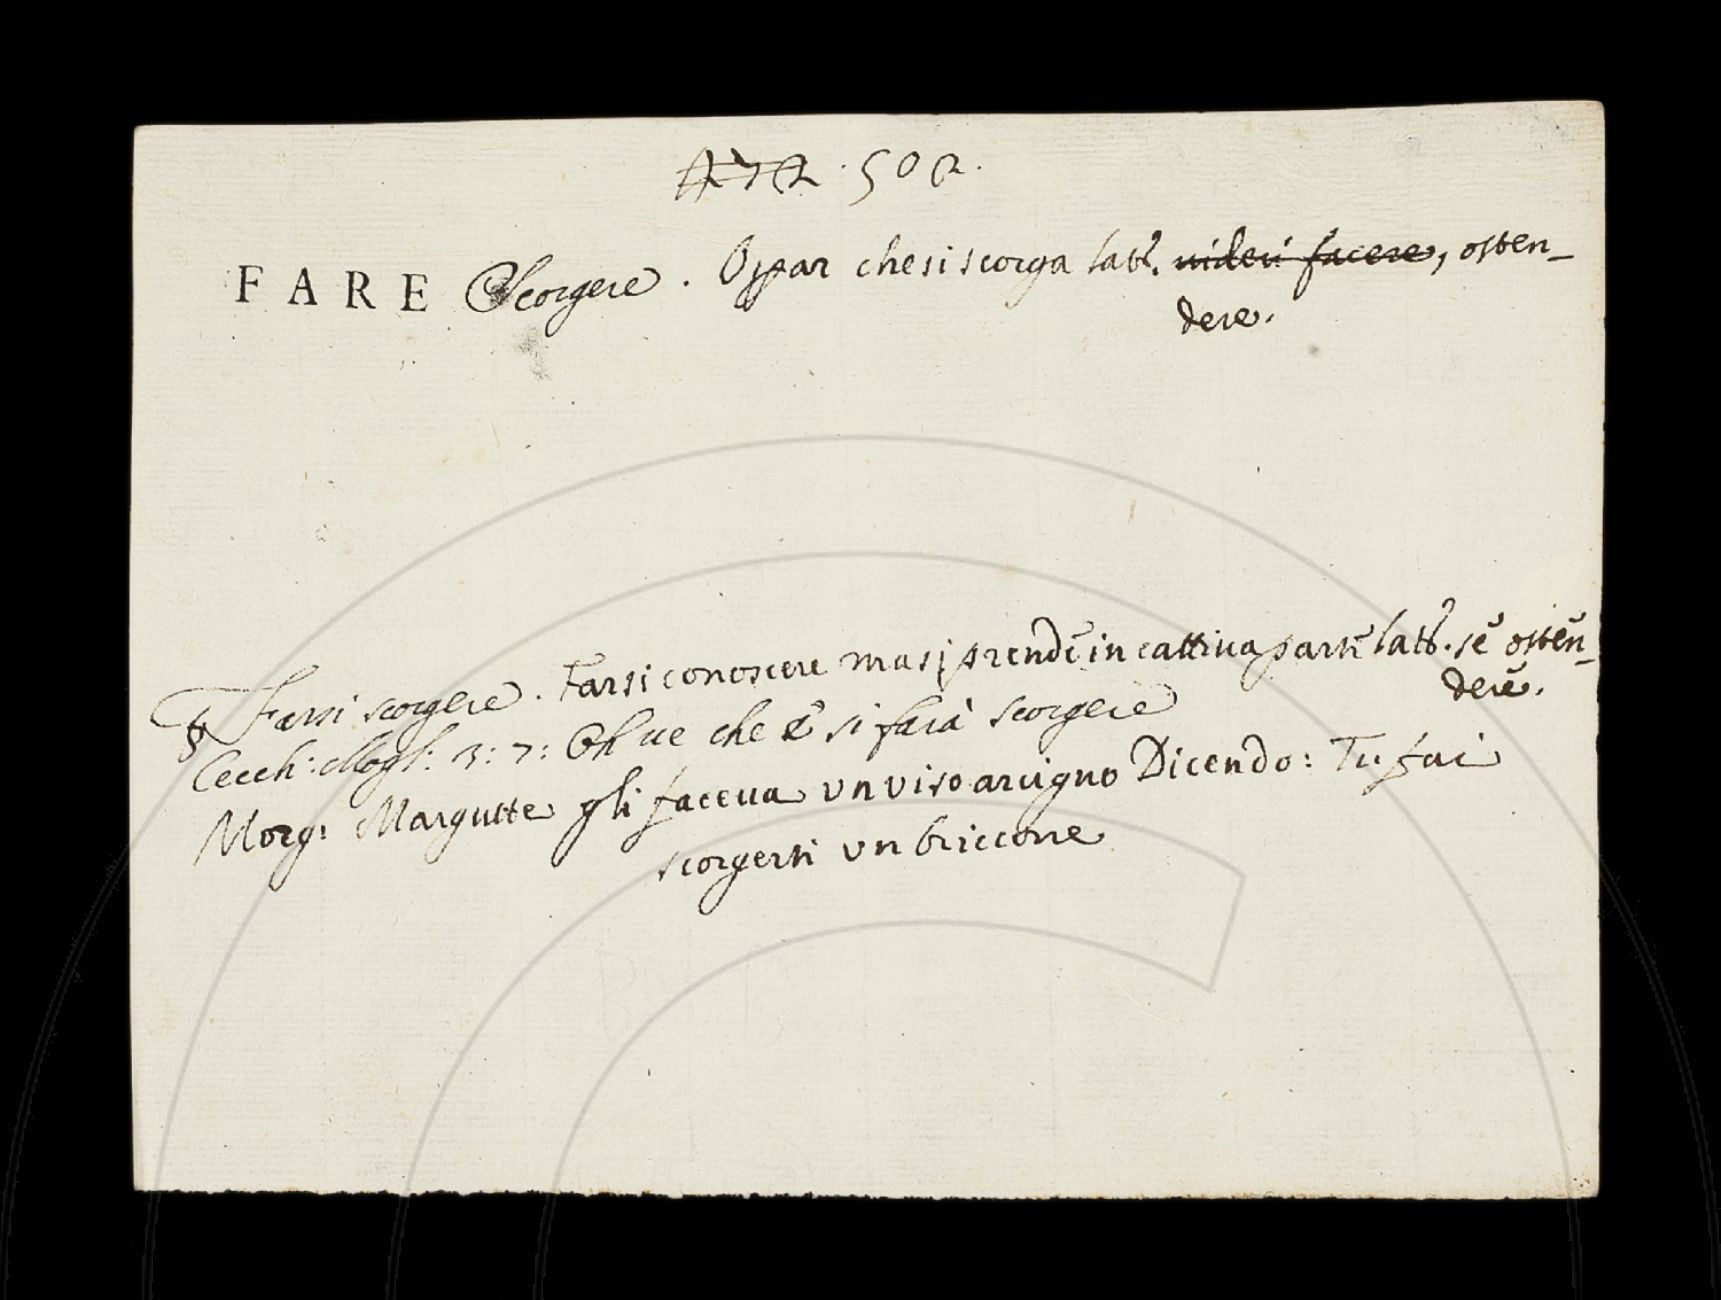 472 . 502.
FARE Scorgere. Oprar che si scorga lat. uideri facere, osten-
dere.
§ Farsi scorgere. Farsi conoscere ma si prende in cattiua parte lat. se osten-
dere.
Cecch: Mogl: 3: 7: Oh ue che e si farà scorgere
Morg: Margutte gli faceua vn viso arcigno Dicendo: Tu fai
scorgerti vn briccone